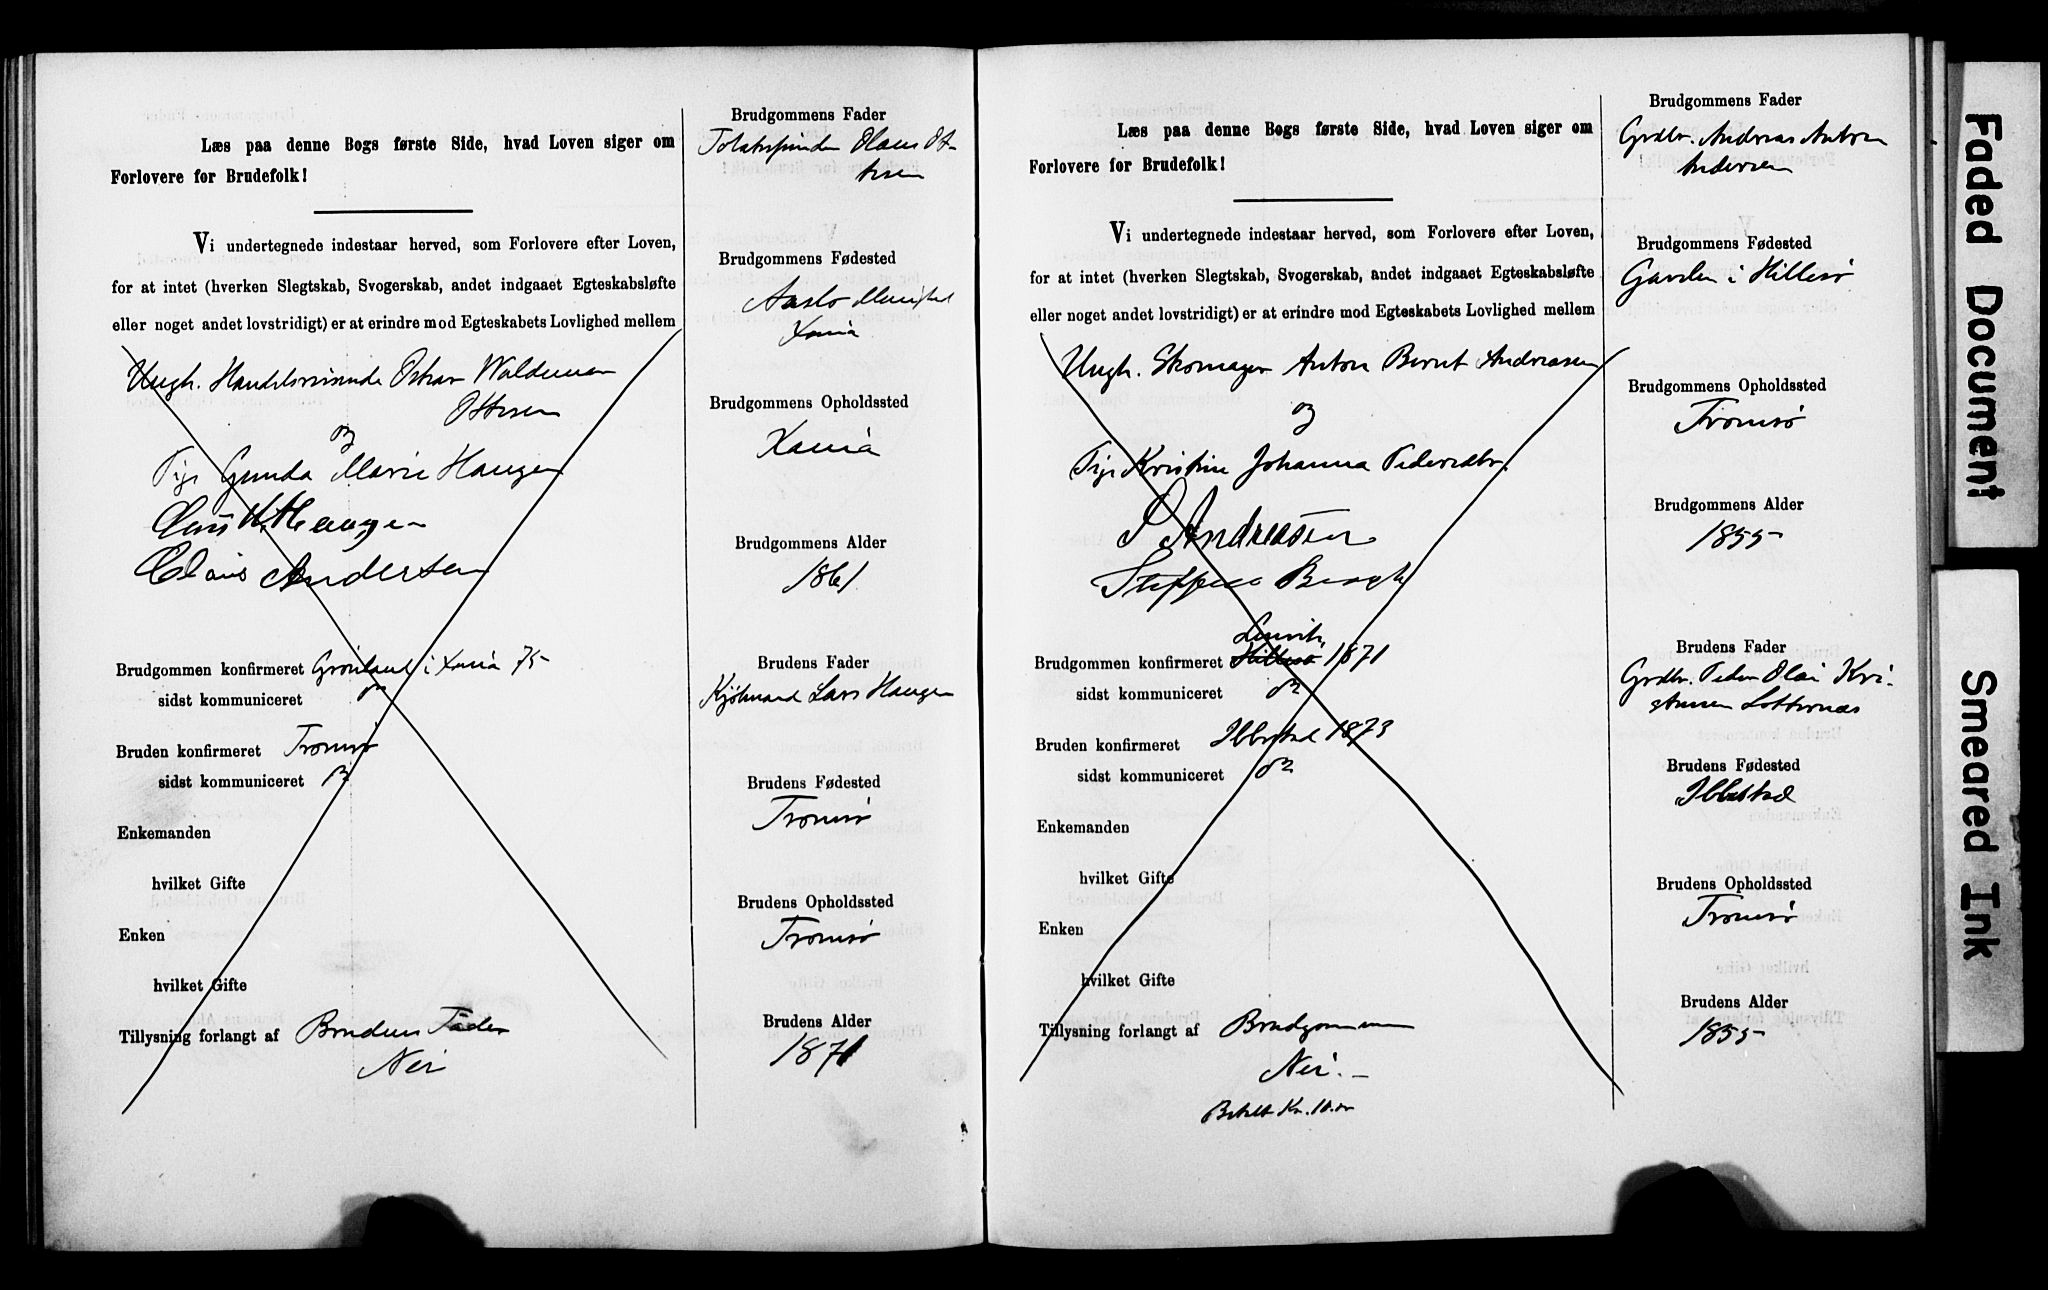 Læs paa denne Bogs første Side, hvad Loven siger om
Forlovere for Brudefolk!
Vi undertegnede indestaar herved, som Forlovere efter Loven,
for at intet (hverken Slegtskab, Svogerskab, andet indgaaet Egteskabsløfte
eller noget andet lovstridigt) er at erindre mod Egteskabets Lovlighed mellem
Ungk. Handelsreisende Oskar Waldemar
Ottesen
og
Pige Gunda Marie Haugen
Haugen
Claus Andersen
Brudgommen konfirmeret Grönland i Xania 75
sidst kommuniceret
Bruden konfirmeret Tromsø
sidst kommuniceret
Enkemanden
hvilket Gifte
Enken
hvilket Gifte
Tillysning forlangt af Brudens Fader
Nei
Brudgommens Fader
Olaus Ot-
tesen
Brudgommens Fødested
Aaslo Menighed
Xania
Brudgommens Opholdssted
Xania
Brudgommens Alder
1861
Brudens Fader
Kjøbmand Lars Haugen
Brudens Fødested
Tromsø
Brudens Opholdssted
Tromsø
Brudens Alder
1871
Læs paa denne Bogs første Side, hvad Loven siger om
Forlovere for Brudefolk!
Vi undertegnede indestaar herved, som Forlovere efter Loven,
for at intet (hverken Slegtskab, Svogerskab, andet indgaaet Egteskabsløfte
eller noget andet lovstridigt) er at erindre mod Egteskabets Lovlighed mellem
Ungk. Skomager Anton Bernt Andreasen
og
Pige Kristine Johanna Pedersdtr.
P Andreasen
Steffen
Lenvik
Brudgommen konfirmeret Hillesø 1871
sidst kommuniceret
Bruden konfirmeret Ibbestad 1873
sidst kommuniceret
Enkemanden
hvilket Gifte
Enken
hvilket Gifte
Tillysning forlangt af Brudgommen
Nei. –
Betalt Kr. 10.00
Brudgommens Fader
Grdbr. Andreas Anton
Andersen
Brudgommens Fødested
i Hillesø
Brudgommens Opholdssted
Tromsø
Brudgommens Alder
1855
Brudens Fader
Grdbr. Peder Olai Kri-
stensen
Brudens Fødested
Ibbestad
Brudens Opholdssted
Tromsø
Brudens Alder
1855
Faded Document
Smeared Ink